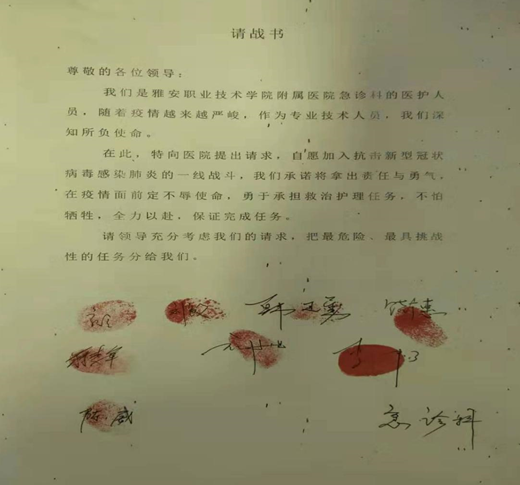 请战书
尊敬的各位领导：
我们是雅安职业技术学院附属医院急诊科的医护人
员，随着疫情越来越严峻，作为专业技术人员，我们深
知所负使命。
在此，特向医院提出请求，自愿加入抗击新型冠状
病毒感染肺炎的一线战斗，我们承诺将拿出责任与勇气，
在疫情面前定不辱使命，勇于承担救治护理任务，不怕
牺牲，全力以赴，保证完成任务。
请领导充分考虑我们的请求，把最危险、最具挑战
性的任务分给我们。
陈威
急诊科